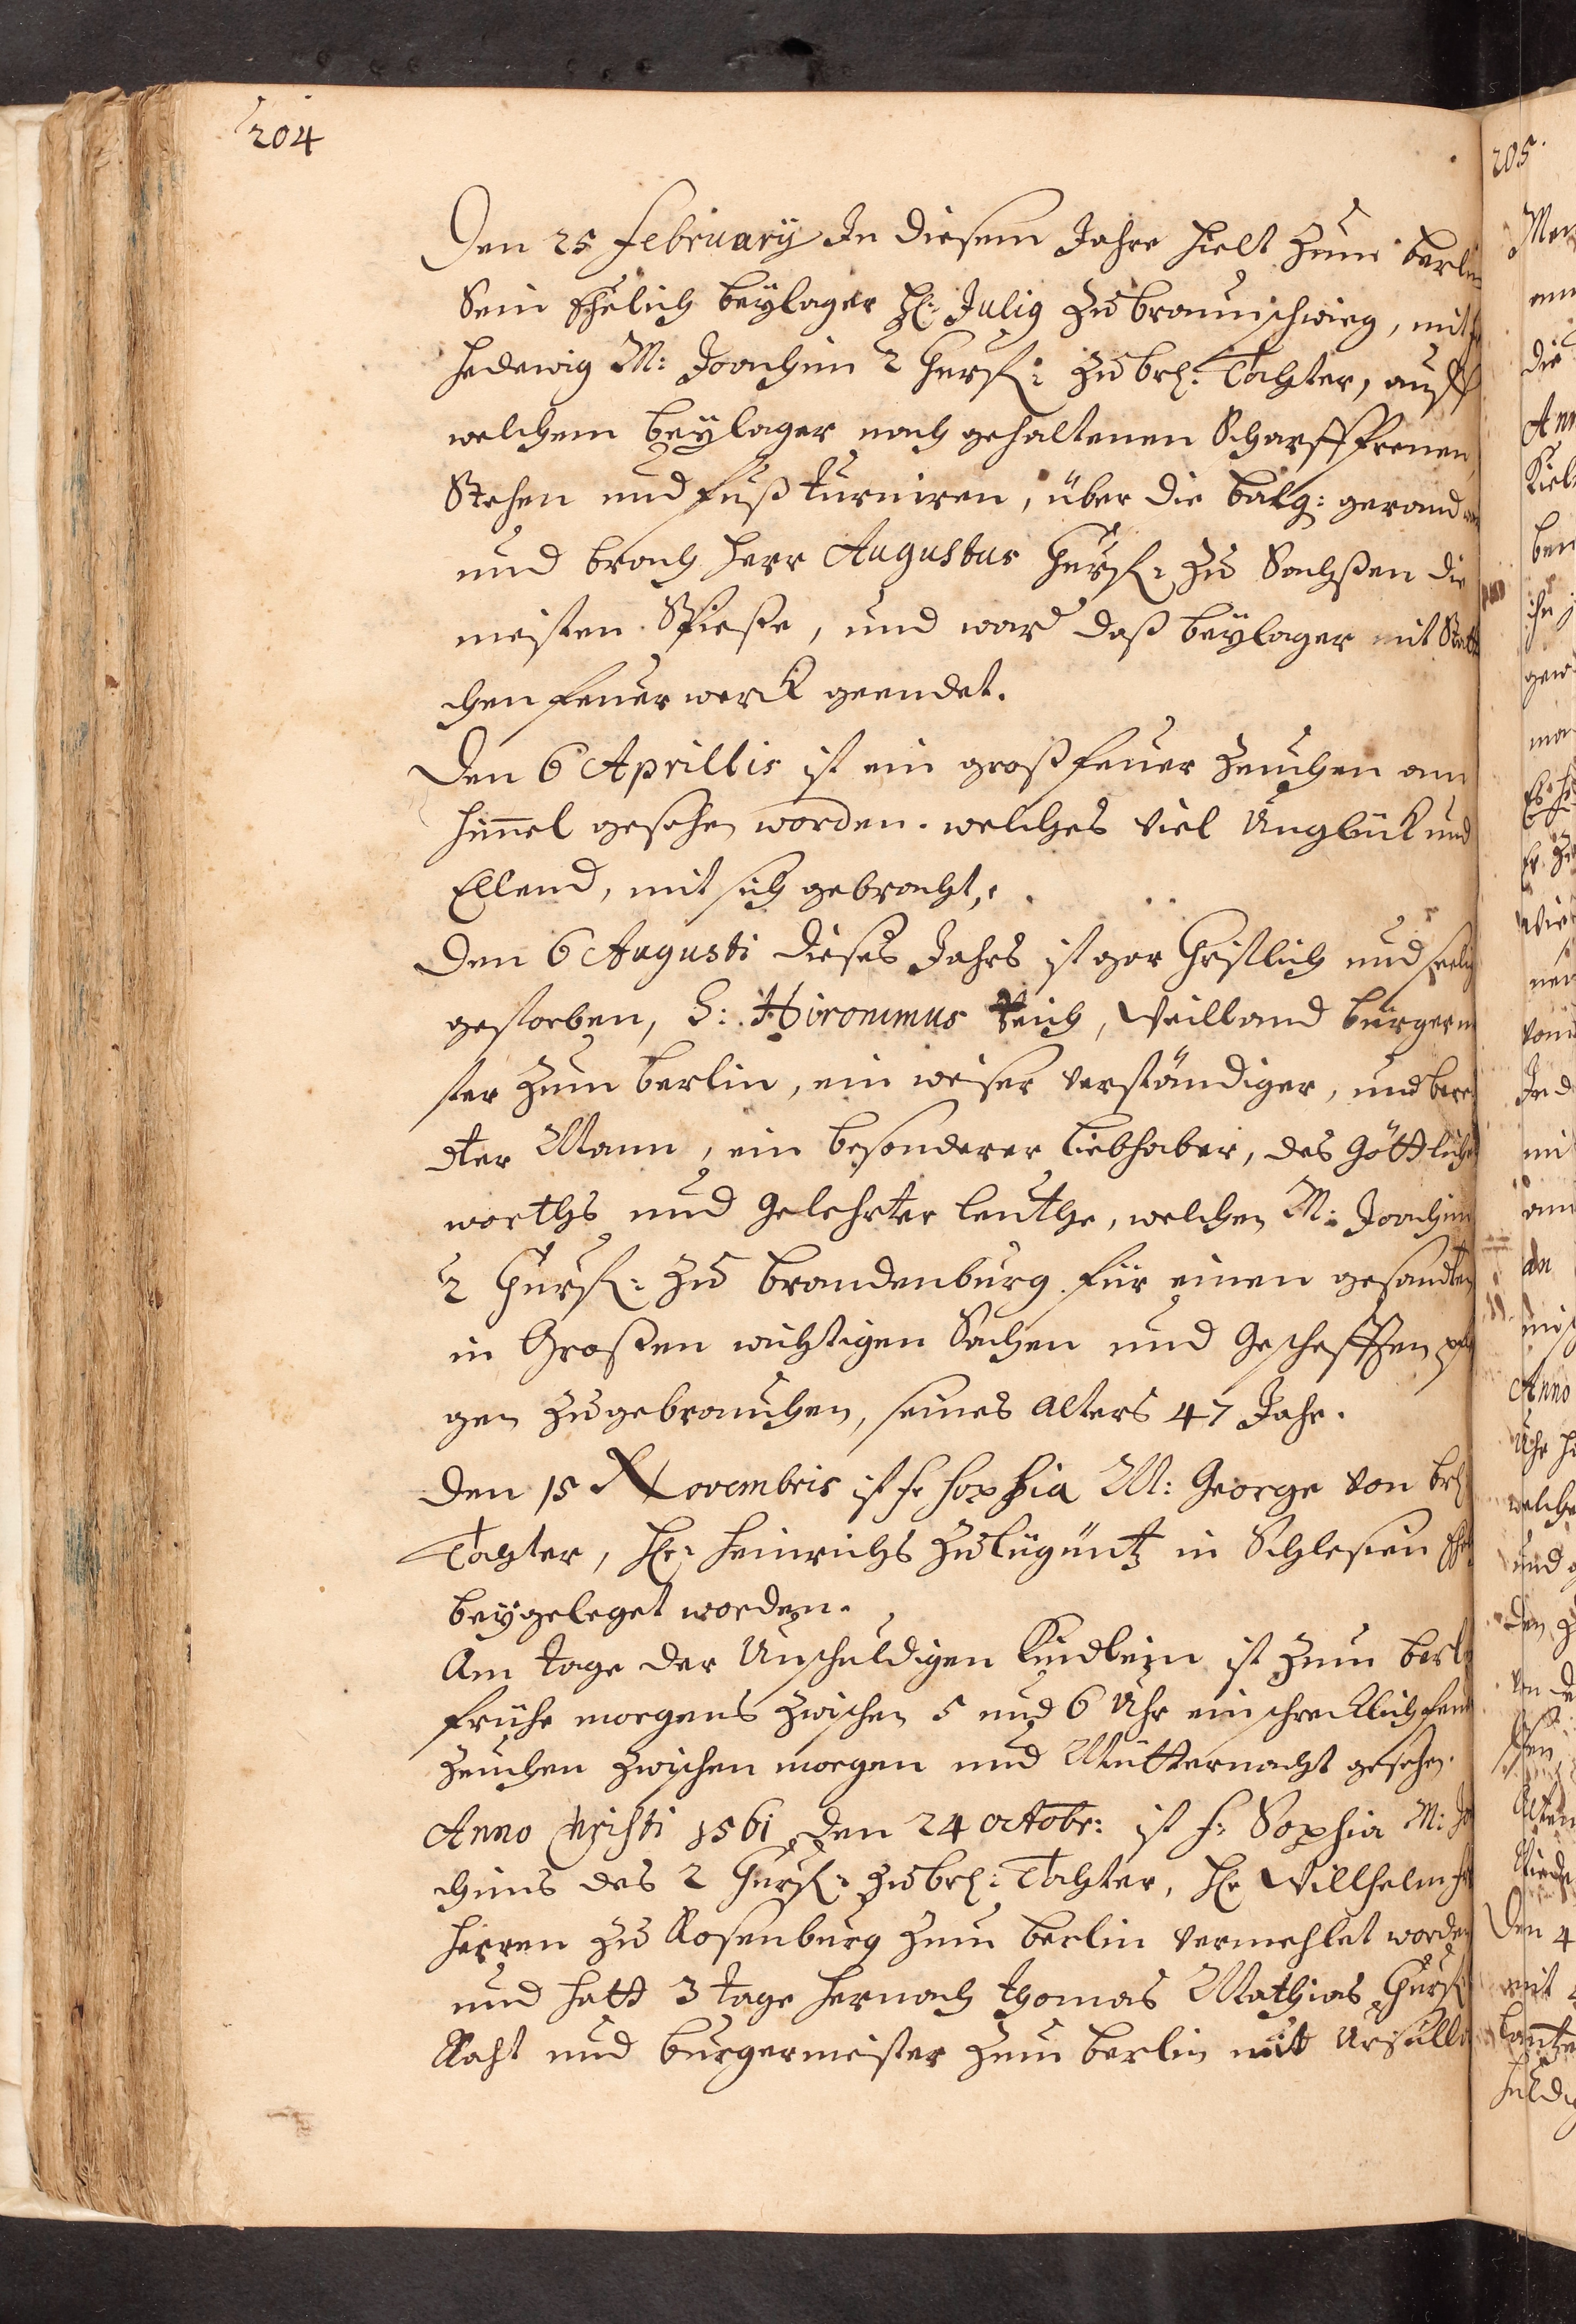 204
Den 25 February In diesem Jahre hielt zum berlin
Sein Ehelich beylager H: Julig zu braunschwieg, mit
Hedewig M: Joachim 2 Churf: zu br: Tochter, auff
welchem beylager nach gehaltenen Scharffrennen,
Stechen und fuß Turniren, über die balg: gerand
und brach herr Augustus Churf: zu Sachßen die
meisten Spieße, und ward daß beylager mit Statt
chen feuerwerck geendet.
Den 6 Aprillis ist ein groß feuer zeuchen am
himmel gesehen worden. welches viel Unglück und
Ellend, mit sich gebracht,
Den 6 Augusti dieses Jahrs ist gar Christlich und seelig
gestorben, H: Hironimus Reich, Weilland bürgerm
ster zum berlin, ein weiser verständiger, und bere
dter Mann, ein besonderer liebhaber, des Göttliche
worths und Gelehrter leuthe, welchen M: Joachim
2 Churf: zu brandenburg für einen gesandten
in Großen wichtigen Sachen und Gescheften pfle
gen zugebrauchen, seines alters 47 Jahr.
Den 15 Novembris ist f: Sophia M: George von br:
Tochter, H: Heinrichs zu Lügnitz in Schlesien Ehe
beygeleget worden.
Am tage der Unschuldigen Kindlein ist zum berl
frühe morgens zwischen 5 und 6 Uhr ein schrecklich feur
zeuchen zwischen morgen und Mütternacht gesehen.
Anno Christi 1561 den 24 octobr: ist f: Sophia M: Jo
chims des 2 Churf: zu br: Tochter, H: Willhelm
herren zu Rosenburg zum berlin vermehlet worden
und hatt 3 tage hernach Thomas Mathias Churf
Raht und burgermeister zum berlin mitt Ursulle
205.
Anno
welche
Den 4
mit